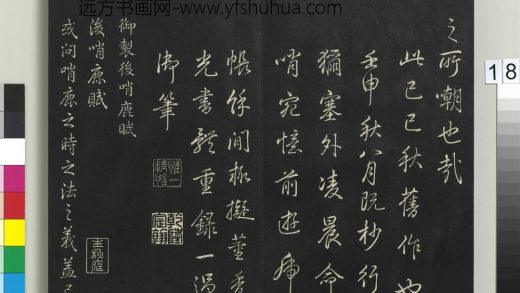 远方书画网-www.yfshuhua.com
之所嘲也哉
此己巳秋舊作也
壬申秋八月既杪行
獮塞外凌晨命
哨宛憶前遊席
帳餘間撫擬董香
光書體重錄一過
御筆
惟一
精惟
乾隆
宸翰
御製後哨鹿賦
後哨鹿賦
或問哨鹿之時之法之義蓋已
18